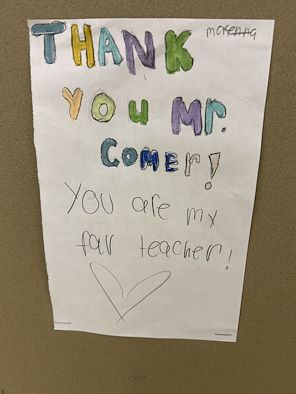 THANK
McKenna
YOU Mr.
COMEr!
YOU are my
fav teacher!